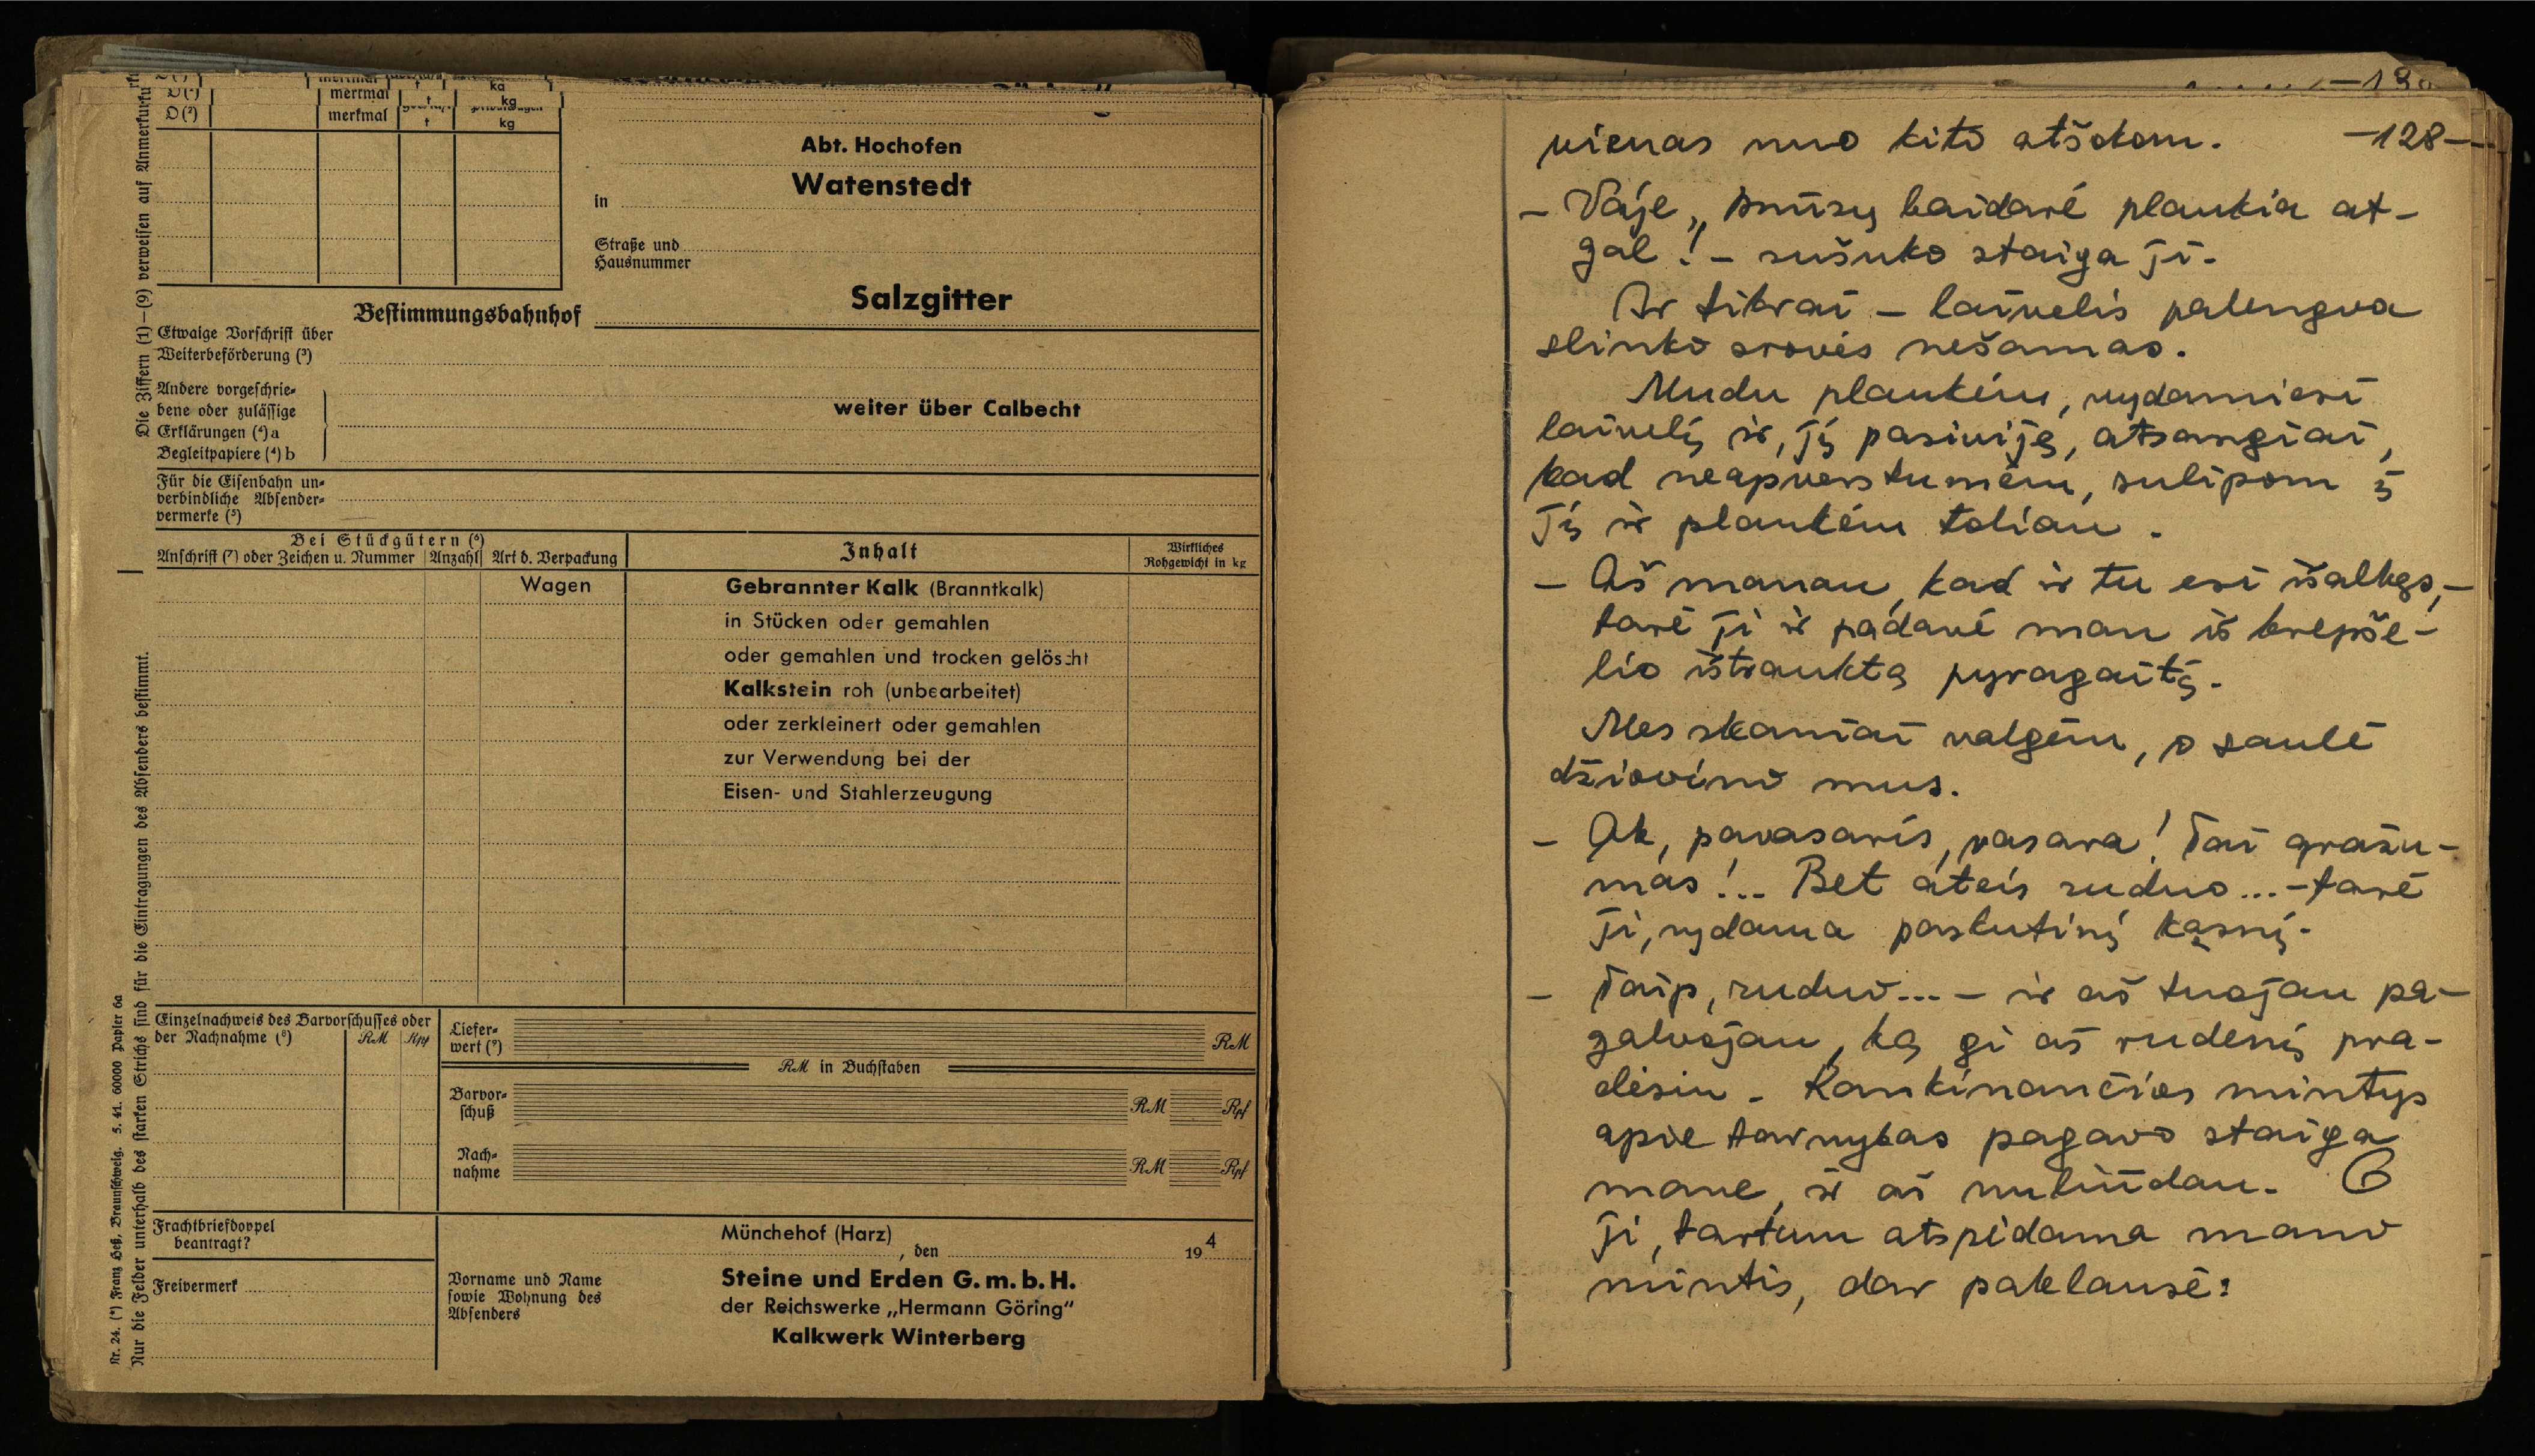 D(²)
merkmal
t
kg
Abt. Hochofen
Watenstedt
in
Straße und
Hausnummer
Salzgitter
Bestimmungsbahnhof
Etwaige Vorschrift über
Weiterbeförderung (³)
Andere vorgeschrie-
bene oder zulässige
Erklärungen (⁴) a
Begleitpapiere (⁴) b
weiter über Calbecht
Für die Eisenbahn un-
verbindliche Absender-
vermerke (⁵)
Bei Stückgütern (⁶)
Anschrift (⁷) oder Zeichen u. Nummer Anzahl Art d. Verpackung
Inhalt
Wirkliches
Rohgewicht in kg
Wagen
Gebrannter Kalk (Branntkalk)
in Stücken oder gemahlen
oder gemahlen und trocken gelöscht
Kalkstein roh (unbearbeitet)
oder zerkleinert oder gemahlen
zur Verwendung bei der
Eisen- und Stahlerzeugung
Einzelnachweis des Barvorschusses oder
der Nachnahme (⁸) RM Rpf
Liefer-
wert (⁹) RM
RM in Buchstaben
Barvor-
schuß RM Rpf
Nach-
nahme RM Rpf
Frachtbriefdoppel
beantragt?
Freivermerk
Münchehof (Harz)
, den 19 4
Vorname und Name
sowie Wohnung des
Absenders
Steine und Erden G. m. b. H.
der Reichswerke „Hermann Göring“
Kalkwerk Winterberg
Die Ziffern (1)—(9) verweisen auf Anmerkung
Nur die Felder unterhalb des starken Strichs sind für die Eintragungen des Absenders bestimmt.
Nr. 24. (*) Franz Heß, Braunschweig. 5. 41. 60000 Papier 6a
vienas nuo kito atšokom. —128—
– Vaje, mūsų baidarė plaukia at-
gal! – sušuko staiga ji.
Ir tikrai – laivelis palengva
slinko srovės nešamas.
Mudu plaukėm, vydamiesi
laivelį ir, jį pasiviję, atsargiai,
kad neapverstumėm, sulipom į
jį ir plaukėm toliau.
– Aš manau, kad ir tu esi išalkęs, –
tarė ji ir padavė man iš krepše-
lio ištrauktą pyragaitį.
Mes skaniai valgėm, o saulė
džiovino mus.
– Ak, pavasaris, vasara! Tai gražu-
mas!.. Bet ateis ruduo... – tarė
ji, rydama paskutinį kąsnį.
– Taip, ruduo... – ir aš tuojau pa-
galvojau, ką gi aš rudenį pra-
dėsiu. Kankinančios mintys
apie tarnybas pagavo staiga
mane, ir aš nuliūdau. O
ji, tartum atspėdama mano
mintis, dar paklausė: